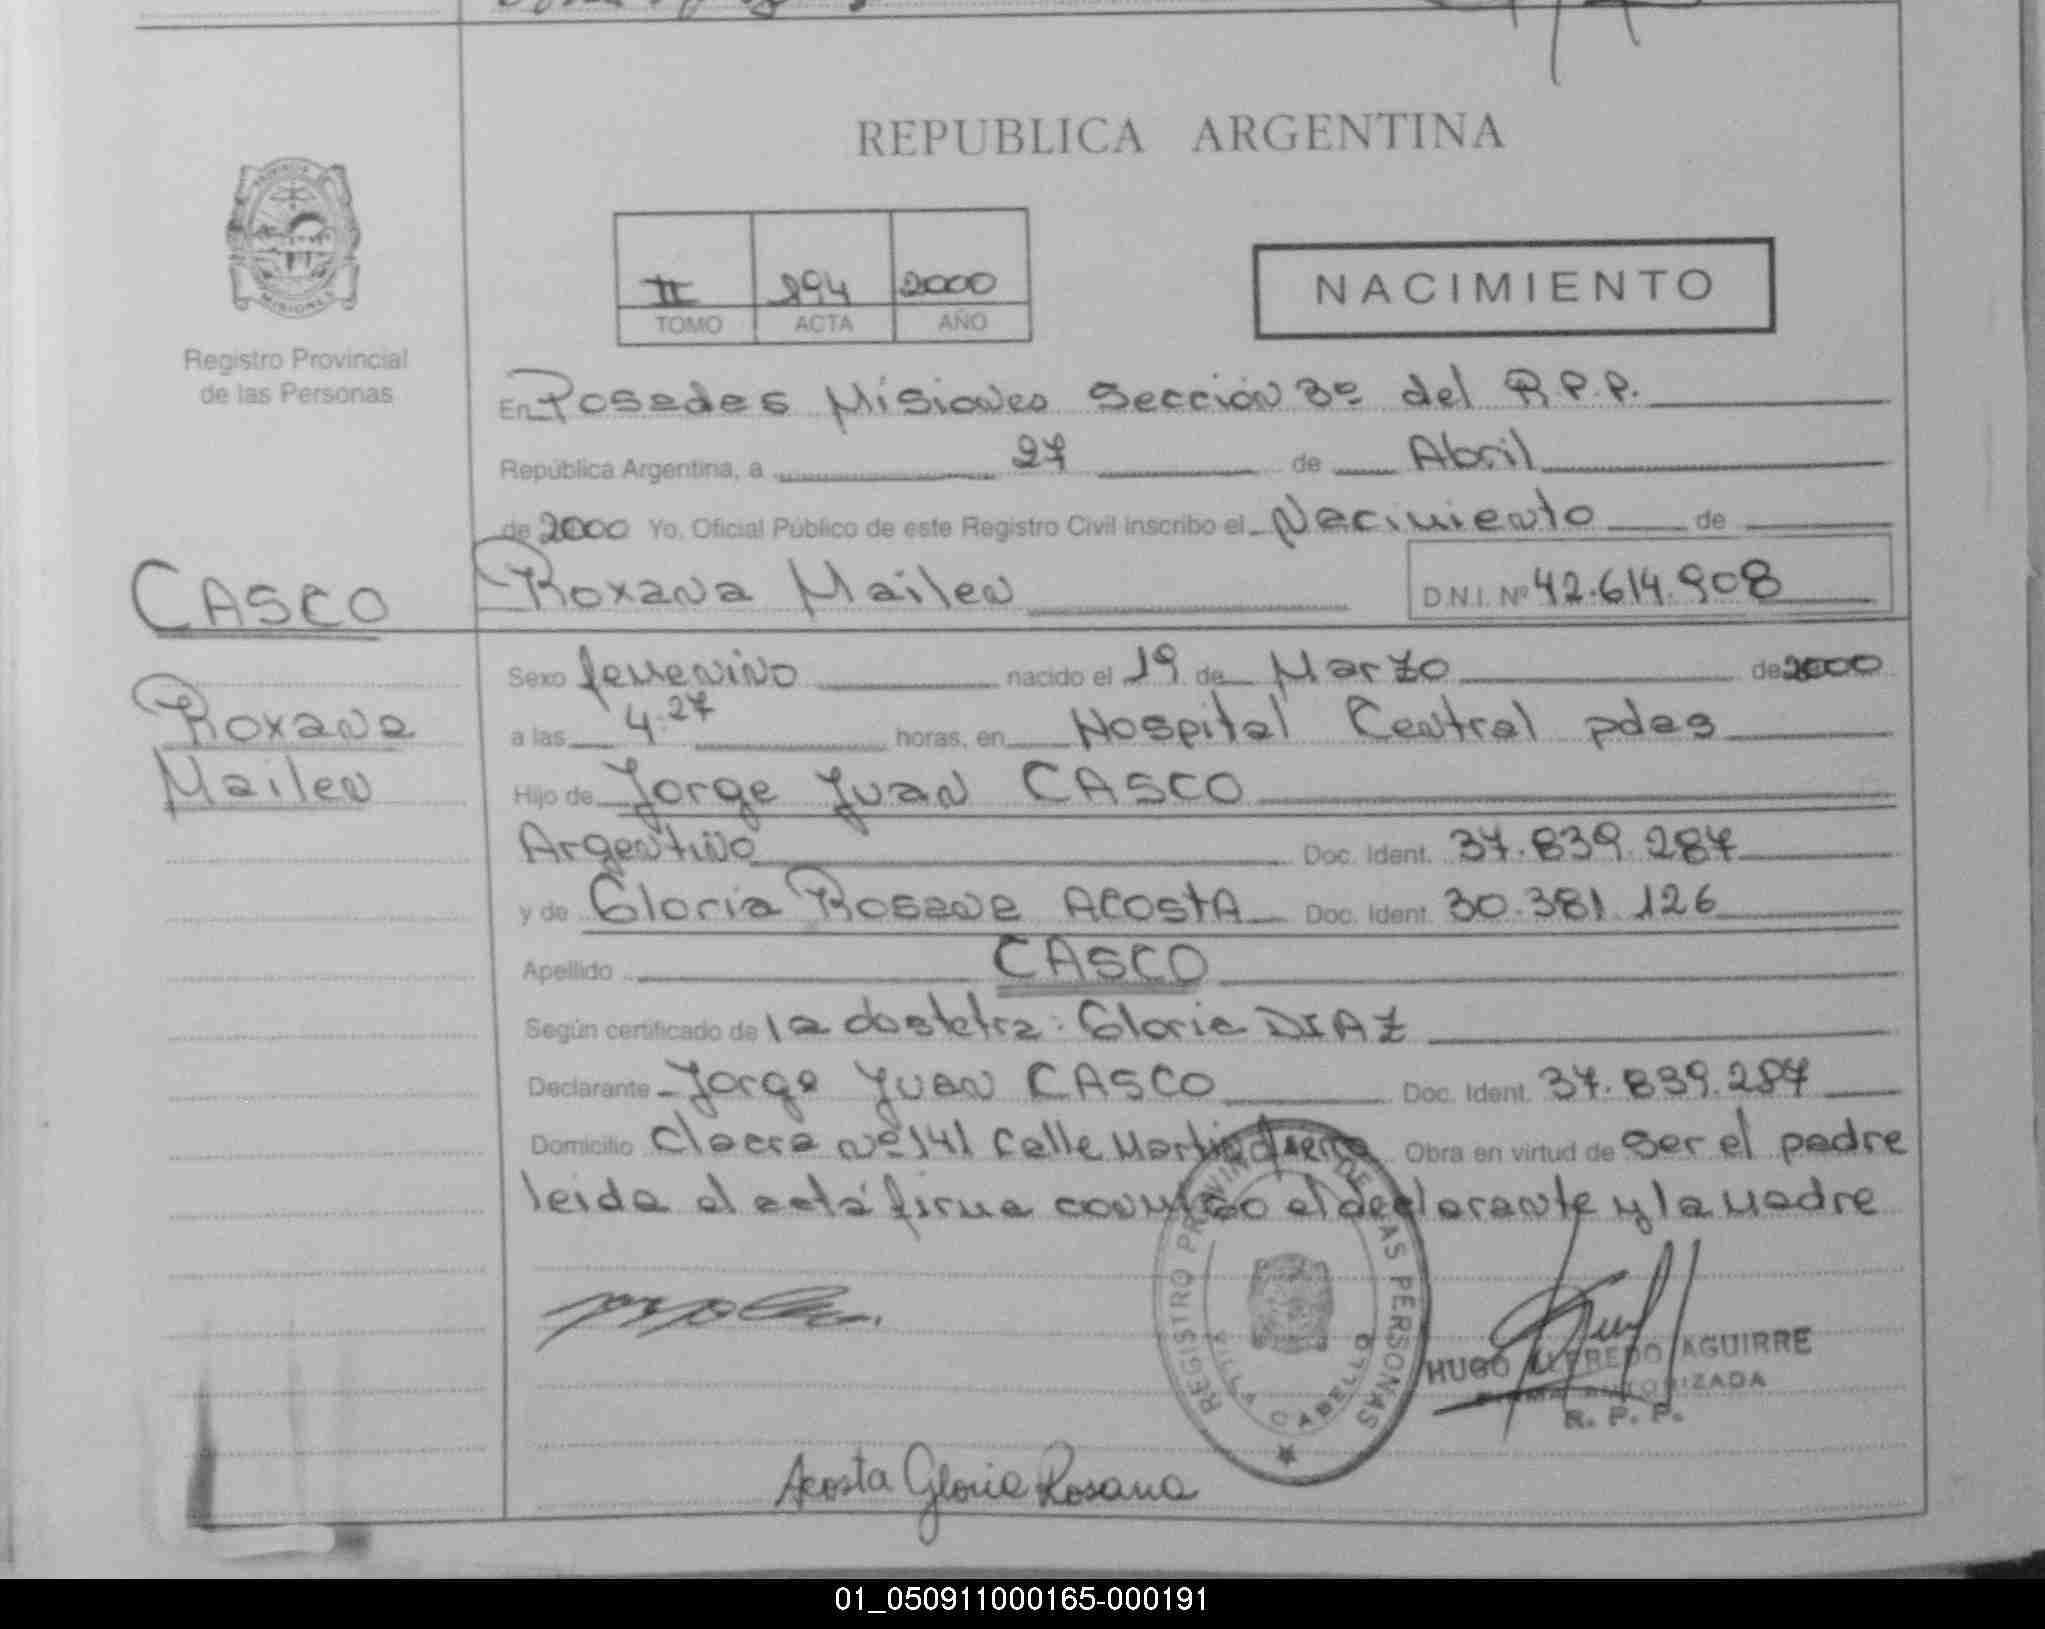 REPUBLICA ARGENTINA
PROVINCIA
MISIONES
Registro Provincial
de las Personas
II 294 2000
TOMO ACTA AÑO
NACIMIENTO
En Posadas Misiones Sección 3º del R.P.P.
República Argentina, a 27 de Abril
de 2000 Yo, Oficial Público de este Registro Civil inscribo el Nacimiento de
Roxana Mailen D.N.I. Nº 42.614.908
CASCO
Roxana
Mailen
Sexo femenino nacido el 19 de Marzo de 2000
a las 4.27 horas, en Hospital Central pdas
Hijo de Jorge Juan CASCO
Argentino Doc. Ident. 37.839.287
y de Gloria Rosana ACOSTA Doc. Ident. 30.381.126
Apellido CASCO
Según certificado de la obstetra: Gloria DIAZ
Declarante Jorge Juan CASCO Doc. Ident. 37.839.287
Domicilio Chacra nº 141 Calle Martin Obra en virtud de ser el padre
leida el acta firma conmigo el declarante y la madre
REGISTRO PROVINCIAL DE LAS PERSONAS
VILLA CABELLO
HUGO ALFREDO AGUIRRE
FIRMA AUTORIZADA
R. P. P.
Acosta Gloria Rosana
01_050911000165-000191